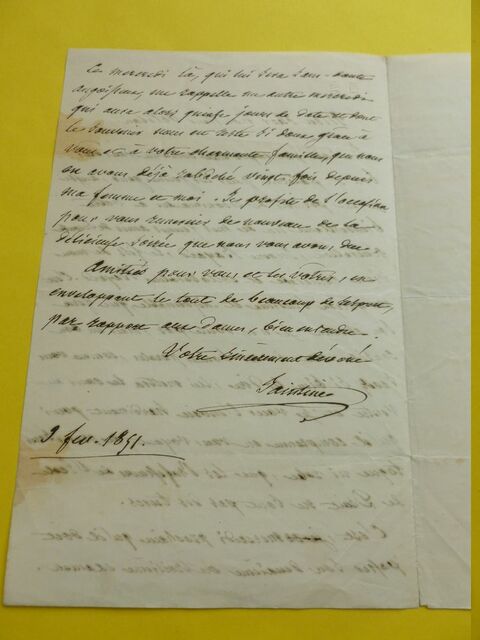 Ce mercredi là, qui lui sera sans-doute
me rappelle un autre mercredi
qui aura alors quinze jours de date et dont
le souvenir nous en reste si doux grace à
vous et à votre charmante famille, que nous
en avons déjà vingt fois depuis
ma femme et moi. Je profite de l'occasion
pour vous remercier de nouveau de la
délicieuse soirée que nous vous avons due
Amitiés pour vous et les vôtres, en
enveloppant le tout de beaucoup de respect,
par rapport aux dames, bien entendu.
Votre sincèrement dévoué
Saintine
9 fev. 1851.